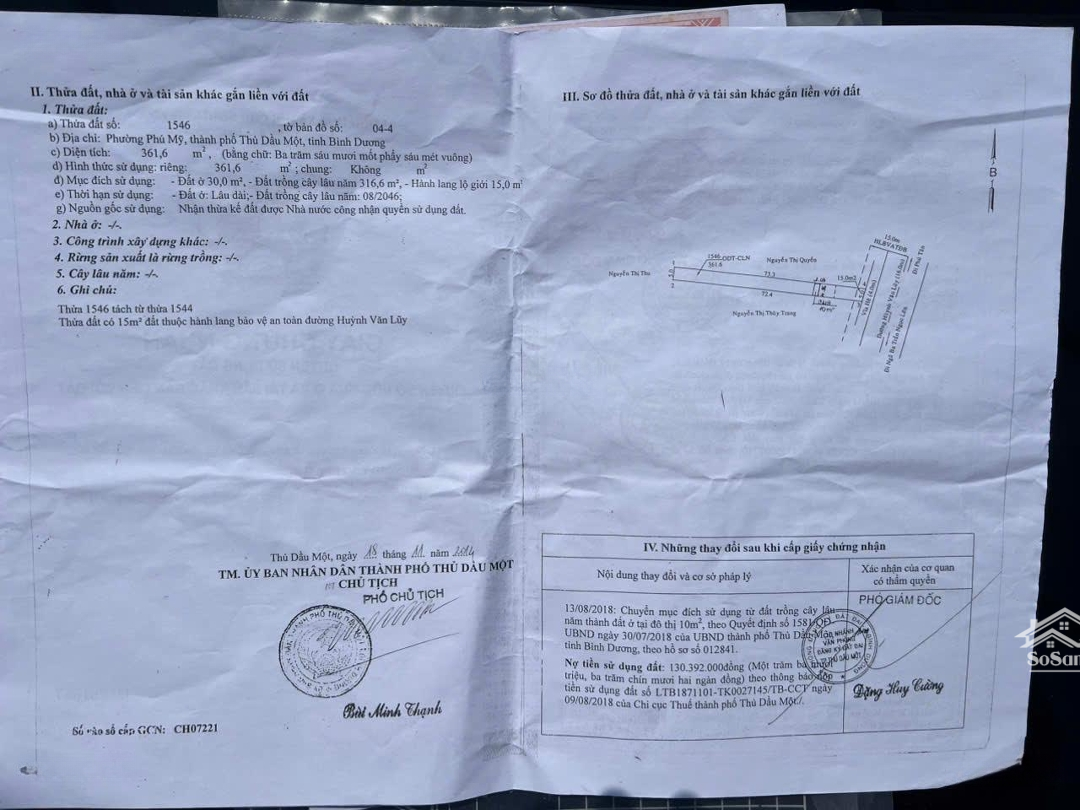 II. Thửa đất, nhà ở và tài sản khác gắn liền với đất
1. Thửa đất:
a) Thửa đất số: 1546 , tờ bản đồ số: 04-4
b) Địa chỉ: Phường Phú Mỹ, thành phố Thủ Dầu Một, tỉnh Bình Dương
c) Diện tích: 361,6 m², (bằng chữ: Ba trăm sáu mươi mốt phẩy sáu mét vuông)
d) Hình thức sử dụng: riêng: 361,6 m² ; chung: Không m²
đ) Mục đích sử dụng: - Đất ở 30,0 m², - Đất trồng cây lâu năm 316,6 m², - Hành lang lộ giới 15,0 m²
e) Thời hạn sử dụng: - Đất ở: Lâu dài;- Đất trồng cây lâu năm: 08/2046;
g) Nguồn gốc sử dụng: Nhận thừa kế đất được Nhà nước công nhận quyền sử dụng đất.
2. Nhà ở: -/-.
3. Công trình xây dựng khác: -/-.
4. Rừng sản xuất là rừng trồng: -/-.
5. Cây lâu năm: -/-.
6. Ghi chú:
Thửa 1546 tách từ thửa 1544
Thửa đất có 15m² đất thuộc hành lang bảo vệ an toàn đường Huỳnh Văn Lũy
Thủ Dầu Một, ngày 18 tháng 11 năm 2014
TM. ỦY BAN NHÂN DÂN THÀNH PHỐ THỦ DẦU MỘT
CHỦ TỊCH
PHÓ CHỦ TỊCH
Bùi Minh Thạnh
Số vào sổ cấp GCN: CH07221
III. Sơ đồ thửa đất, nhà ở và tài sản khác gắn liền với đất
B
15.0m
HLBVATĐB
Đi Phú Tân
1546 ODT-CLN
361.6
Nguyễn Thị Quyên
Nguyễn Thị Thu
5.0
73.3
15.0m2
72.4
Nguyễn Thị Thùy Trang
Vỉa Hè (4.0m)
Đường Huỳnh Văn Lũy (16.0m)
Đi Ngã Ba Trần Ngọc Lên
IV. Những thay đổi sau khi cấp giấy chứng nhận
Nội dung thay đổi và cơ sở pháp lý
Xác nhận của cơ quan
có thẩm quyền
13/08/2018: Chuyển mục đích sử dụng từ đất trồng cây lâu
năm thành đất ở tại đô thị 10m², theo Quyết định số 1581/QĐ-
UBND ngày 30/07/2018 của UBND thành phố Thủ Dầu Một,
tỉnh Bình Dương, theo hồ sơ số 012841.
Nợ tiền sử dụng đất: 130.392.000đồng (Một trăm ba mươi
triệu, ba trăm chín mươi hai ngàn đồng) theo thông báo nộp
tiền sử dụng đất số LTB1871101-TK0027145/TB-CCT ngày
09/08/2018 của Chi cục Thuế thành phố Thủ Dầu Một./.
PHÓ GIÁM ĐỐC
CHI NHÁNH
VĂN PHÒNG
ĐĂNG KÝ ĐẤT ĐAI
THỦ DẦU MỘT
Đặng Huy Cường
SoSan